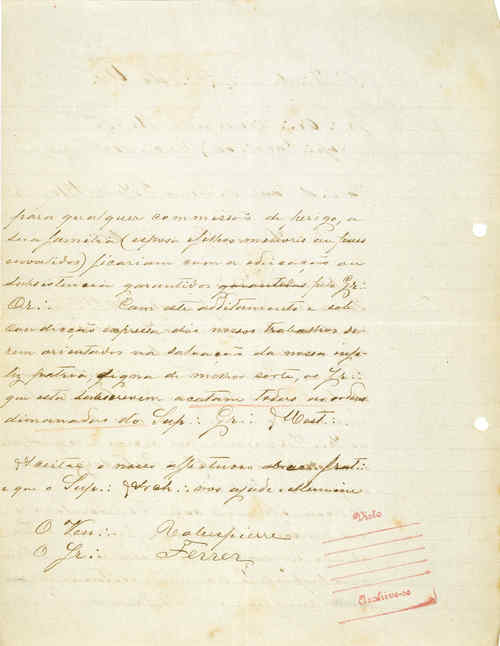 para qualquer commissão de perigo, a
sua familia (esposa e filhos menores ou paes
invalidos) ficariam com a educação ou
subsistencia garantidos garantidas pelo Gr∴
Or∴ Com este additamento e esta
condicção expressa dos nossos trabalhos se-
rem orientados na salvação da nossa infe-
liz patria digna de melhor sorte, os IIr∴
que este subscrevem acatam todas as ordens
dimanadas do Sup∴ Gr∴ Mest∴
Acceitae o nosso affectuoso frat∴
e que o Sup∴ Arch∴ nos ajude e illumine
O Ven∴ Robespierre
O Ir∴ Ferrer
Visto
Archive-se